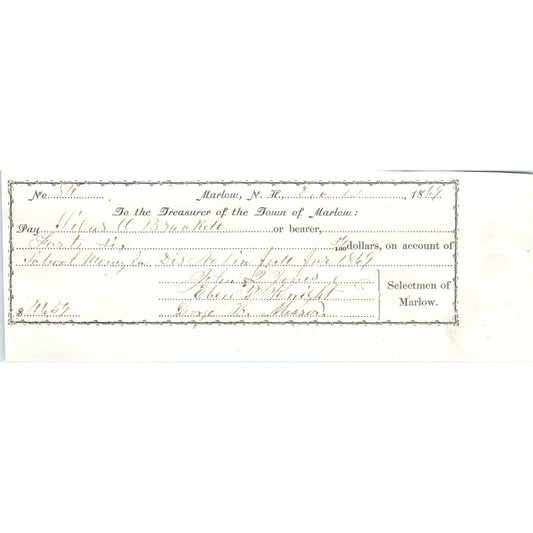 No. 84 Marlow, N. H., Dec 12, 1869
To the Treasurer of the Town of Marlow:
Pay A Brackett or bearer,
Forty Six 39/100 dollars, on account of
School Money in Dis No 1 in full for 1869
John Q Jones
Eben Knight
$ 46,39 George Selectmen of
Marlow.